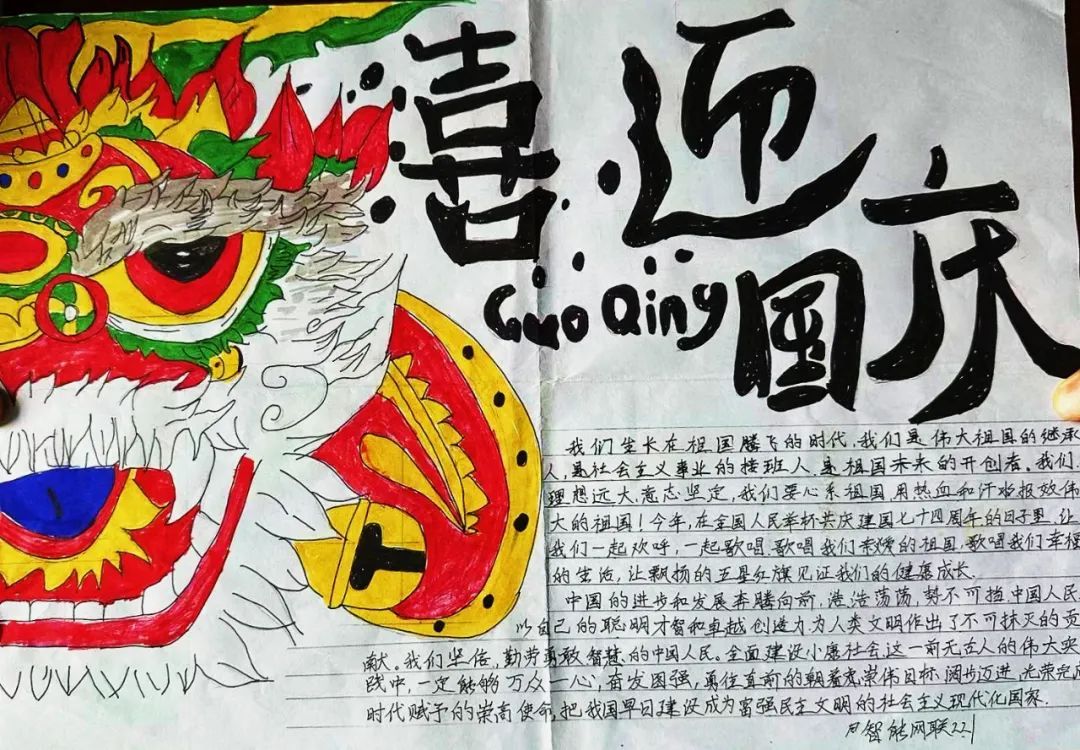 喜迎
国庆
GuoQing
我们生长在祖国腾飞的时代,我们是伟大祖国的继承
人,是社会主义事业的接班人,是祖国未来的开创者。我们
理想远大,意志坚定,我们要心系祖国,用热血和汗水报效伟
大的祖国!今年,在全国人民举杯共庆建国七十四周年的日子里,让
我们一起欢呼,一起歌唱,歌唱我们亲爱的祖国,歌唱我们幸福
的生活,让飘扬的五星红旗见证我们的健康成长.
中国的进步和发展奔腾向前,浩浩荡荡,势不可挡中国人民
以自己的聪明才智和卓越创造力为人类文明作出了不可抹灭的贡
献。我们坚信,勤劳勇敢智慧的中国人民。全面建设小康社会这一前无古人的伟大实
践中,一定能够万众一心,奋发图强,勇往直前的朝着崇伟目标,阔步迈进,光荣完成
时代赋予的崇高使命,把我国早日建设成为富强民主文明的社会主义现代化国家.
智能网联221